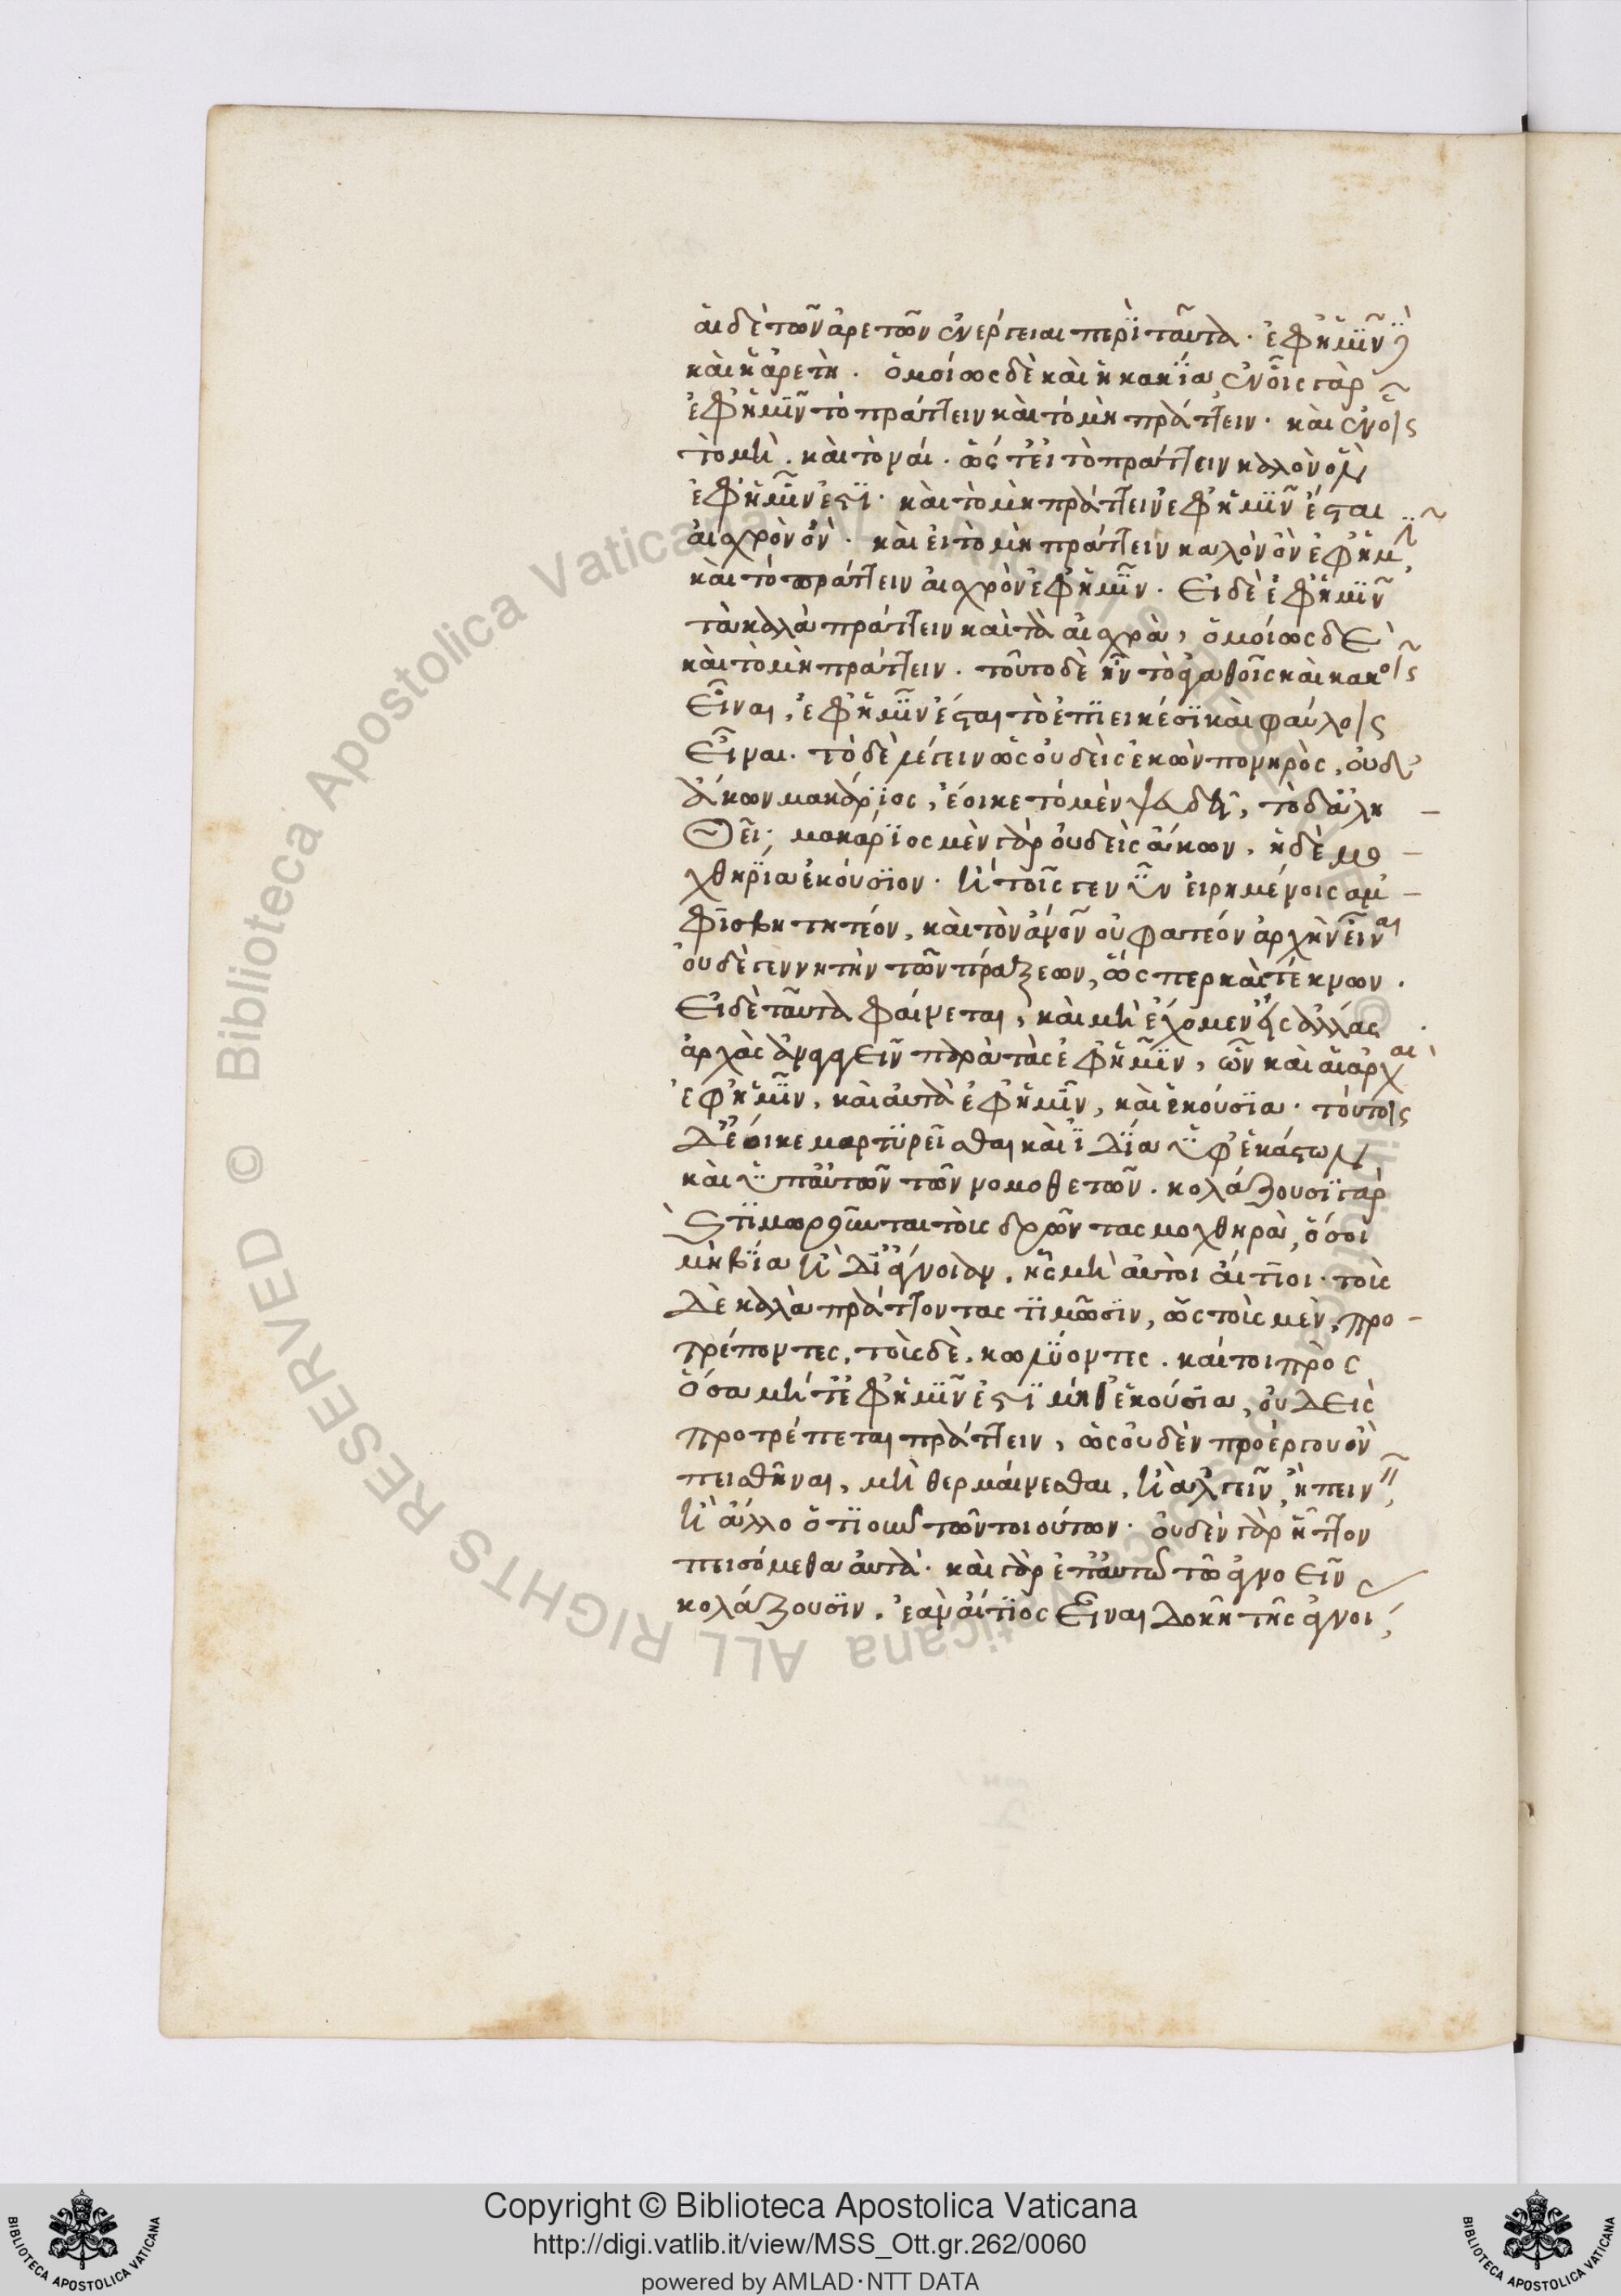 αἱ δὲ τῶν ἀρετῶν ἐνέργειαι περὶ ταῦτα· ἐφ' ἡμῖν δὲ
καὶ ἡ ἀρετὴ. ὁμοίως δὲ καὶ ἡ κακία ἐν οἷς γὰρ
ἐφ' ἡμῖν τὸ πράττειν καὶ τὸ μὴ πράττειν· καὶ ἐν οἷς
τὸ μὴ. καὶ τὸ ναί. ὥστ' εἰ τὸ πράττειν καλὸν ὂν
ἐφ' ἡμῖν ἐστὶ· καὶ τὸ μὴ πράττειν ἐφ' ἡμῖν ἔσται
αἰσχρὸν ὂν. καὶ εἰ τὸ μὴ πράττειν καλὸν ὂν ἐφ' ἡμῖν,
καὶ τὸ πράττειν αἰσχρὸν ἐφ' ἡμῖν. Εἰ δὲ ἐφ' ἡμῖν
τὰ καλὰ πράττειν καὶ τὰ αἰσχρὰ, ὁμοίως δὲ
καὶ τὸ μὴ πράττειν. τοῦτο δὲ ἦν τὸ ἀγαθοῖς καὶ κακοῖς
εἶναι, ἐφ' ἡμῖν ἔσται τὸ ἐπιεικέσι καὶ φαύλοις
εἶναι. τὸ δὲ λέγειν ὡς οὐδεὶς ἑκὼν πονηρὸς, οὐδ'
ἄκων μακάριος, ἔοικε τὸ μὲν ψευδεῖ, τὸ δ' ἀλη
θεῖ; μακάριος μὲν γὰρ οὐδεὶς ἄκων, ἡ δὲ μο
χθηρία ἑκούσιον. ἢ τοῖς γε νῦν εἰρημένοις ἀμ
φισβητητέον, καὶ τὸν ἄνθρωπον οὐ φατέον ἀρχὴν εἶναι
οὐδὲ γεννητὴν τῶν πράξεων, ὥσπερ καὶ τέκνων.
Εἰ δὲ ταῦτα φαίνεται, καὶ μὴ ἔχομεν εἰς ἄλλας
ἀρχὰς ἀναγαγεῖν παρὰ τὰς ἐφ' ἡμῖν, ὧν καὶ αἱ ἀρχαὶ
ἐφ' ἡμῖν, καὶ αὐτὰ ἐφ' ἡμῖν, καὶ ἑκούσια. τούτοις
δ' ἔοικε μαρτυρεῖσθαι καὶ ἰδία ὑφ' ἑκάστων
καὶ ὑπ' αὐτῶν τῶν νομοθετῶν. κολάζουσι γὰρ
καὶ τιμωροῦνται τοὺς δρῶντας μοχθηρὰ, ὅσοι
μὴ βία ἢ δι' ἄγνοιαν, ἧς μὴ αὐτοὶ αἴτιοι· τοὺς
δὲ καλὰ πράττοντας τιμῶσιν, ὡς τοὺς μὲν, προ
τρέποντες, τοὺς δὲ, κωλύοντες. καίτοι πρὸς
ὅσα μήτ' ἐφ' ἡμῖν ἐστὶ μήθ' ἑκούσια, οὐδεὶς
προτρέπεται πράττειν, ὡς οὐδὲν πρὸ ἔργου ὂν
πεισθῆναι, μὴ θερμαίνεσθαι, ἢ ἀλγεῖν, ἢ πεινῆν,
ἢ ἄλλο ὁτιοῦν τῶν τοιούτων. οὐδὲν γὰρ ἧττον
πεισόμεθα αὐτὰ. καὶ γὰρ ἐπ' αὐτῶ τῶ ἀγνοεῖν
κολάζουσιν, ἐὰν αἴτιος εἶναι δοκῆ τῆς ἀγνοίας
Copyright © Biblioteca Apostolica Vaticana
http://digi.vatlib.it/view/MSS_Ott.gr.262/0060
powered by AMLAD·NTT DATA
BIBLIOTECA APOSTOLICA VATICANA
BIBLIOTECA APOSTOLICA VATICANA
© Biblioteca Apostolica Vaticana ALL RIGHTS RESERVED
© Biblioteca Apostolica Vaticana ALL RIGHTS RESERVED